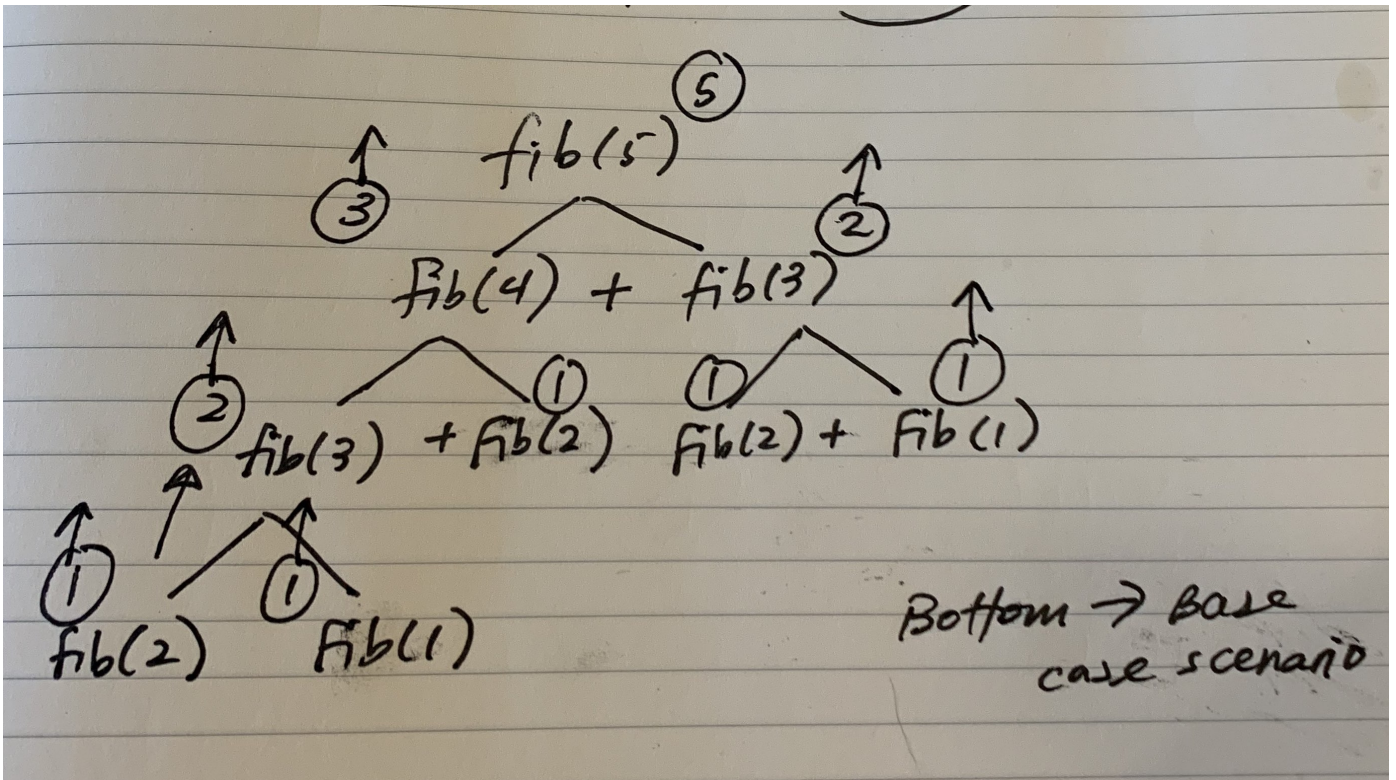 5
fib(5)
3
2
fib(4) + fib(3)
2
1
1
1
fib(3) + fib(2) fib(2) + fib(1)
1
1
fib(2) fib(1)
Bottom → Base
case scenario